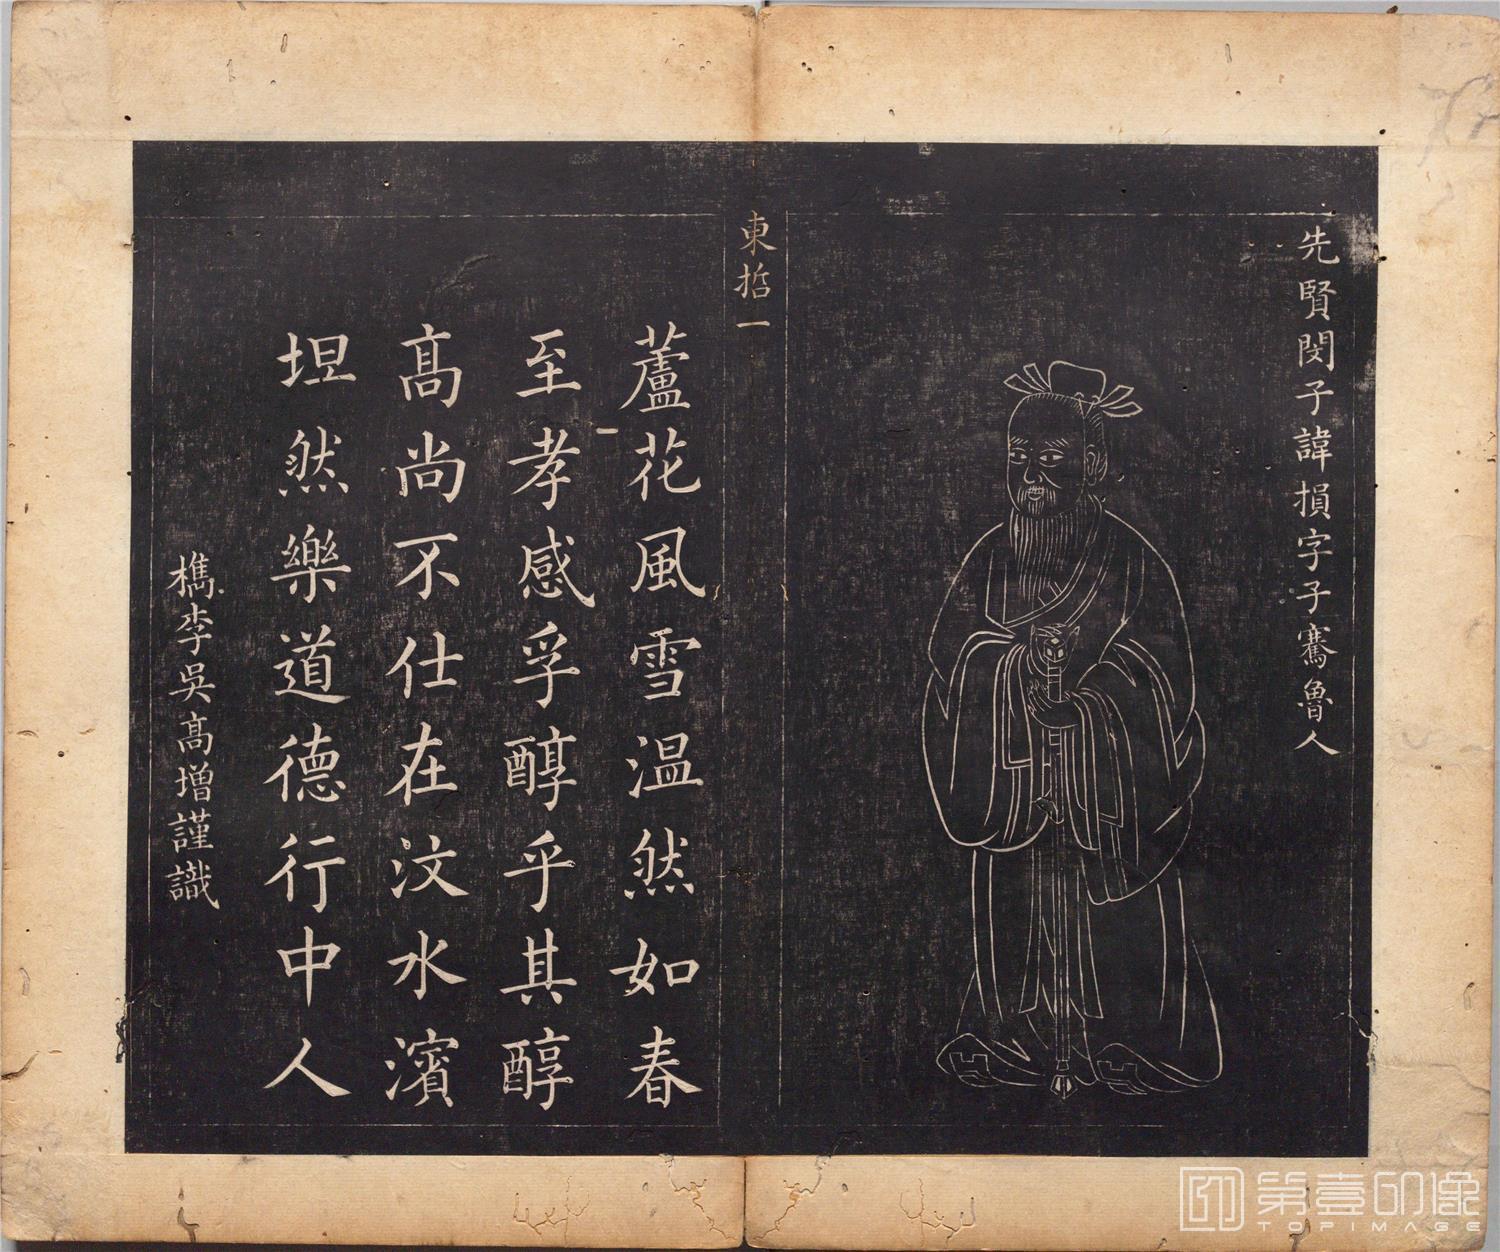 先賢閔子諱損字子騫魯人
東哲一
蘆花風雪温然如春
至孝感孚醇乎其醇
髙尚不仕在汶水濱
坦然樂道德行中人
檇李吳髙增謹識
第壹印像
TOPIMAGE